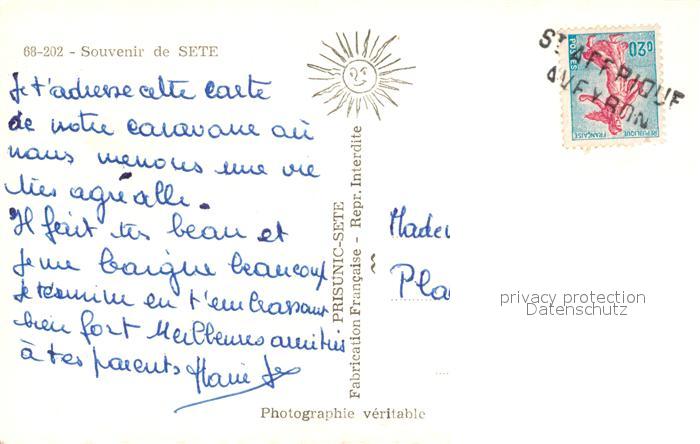 68-202 - Souvenir de SETE
Je t'adresse cette carte
de notre caravane où
nous menons une vie
très agréable.
Il fait très beau et
je me baigne beaucoup
Je termine en t'embrassant
bien fort Meilleures amitiés
à tes parents Marie
PRISUNIC-SETE
Fabrication Française - Repr. Interdite
Photographie véritable
ST AFFRIQUE
AVEYRON
POSTES
0,20
REPUBLIQUE FRANÇAISE
Made
Pla
privacy protection
Datenschutz